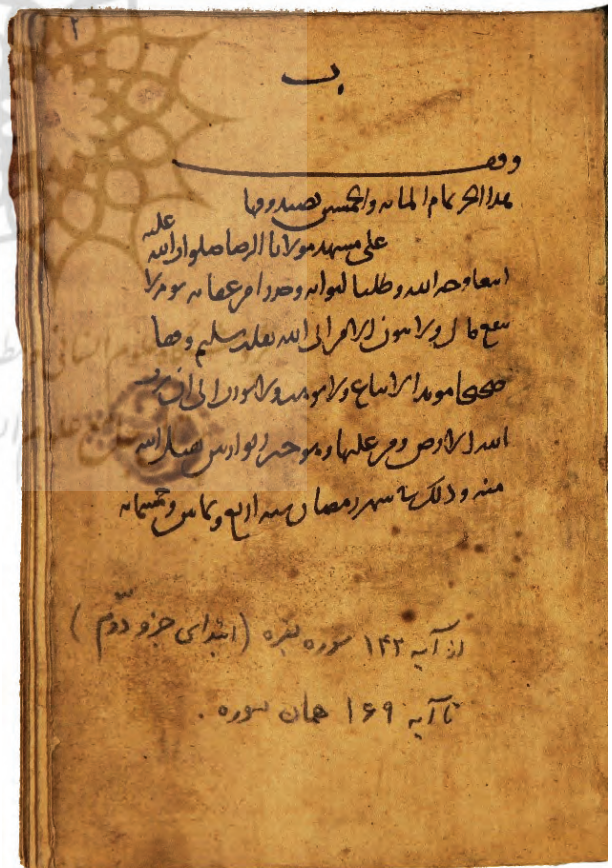 ٢
ب
وقف
هذا الجزء تمام المائة والخمسين بصندوقها
على مشهد مولانا الرضا صلوات الله عليه
ابتغا وجه الله وطلبا لثوابه وحذرا من عقابه يوم لا
ينفع مال ولا بنون الا من اتى الله بقلب سليم وقفا
صحيحا موبدا لا يباع ولا يوهب ولا يورث الى ان يرث
الله الارض ومن عليها وهو خير الوارثين تقبل الله
منه وذلك في شهر رمضان سنه اربع وثمانين وخمسمائه
از آیه ۱۴۲ سوره بقره (ابتدای جزو دوّم)
تا آیه ۱۶۹ همان سوره .